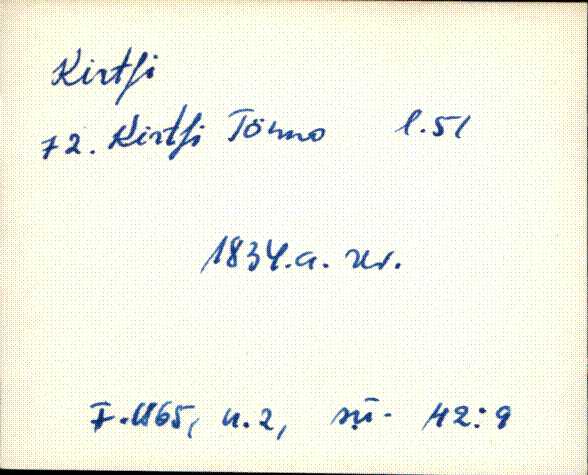 Kirtsi
72. Kirtsi Tönno l. 51
1834.a. rev.
F. 1865, n. 2, sü. 42:9